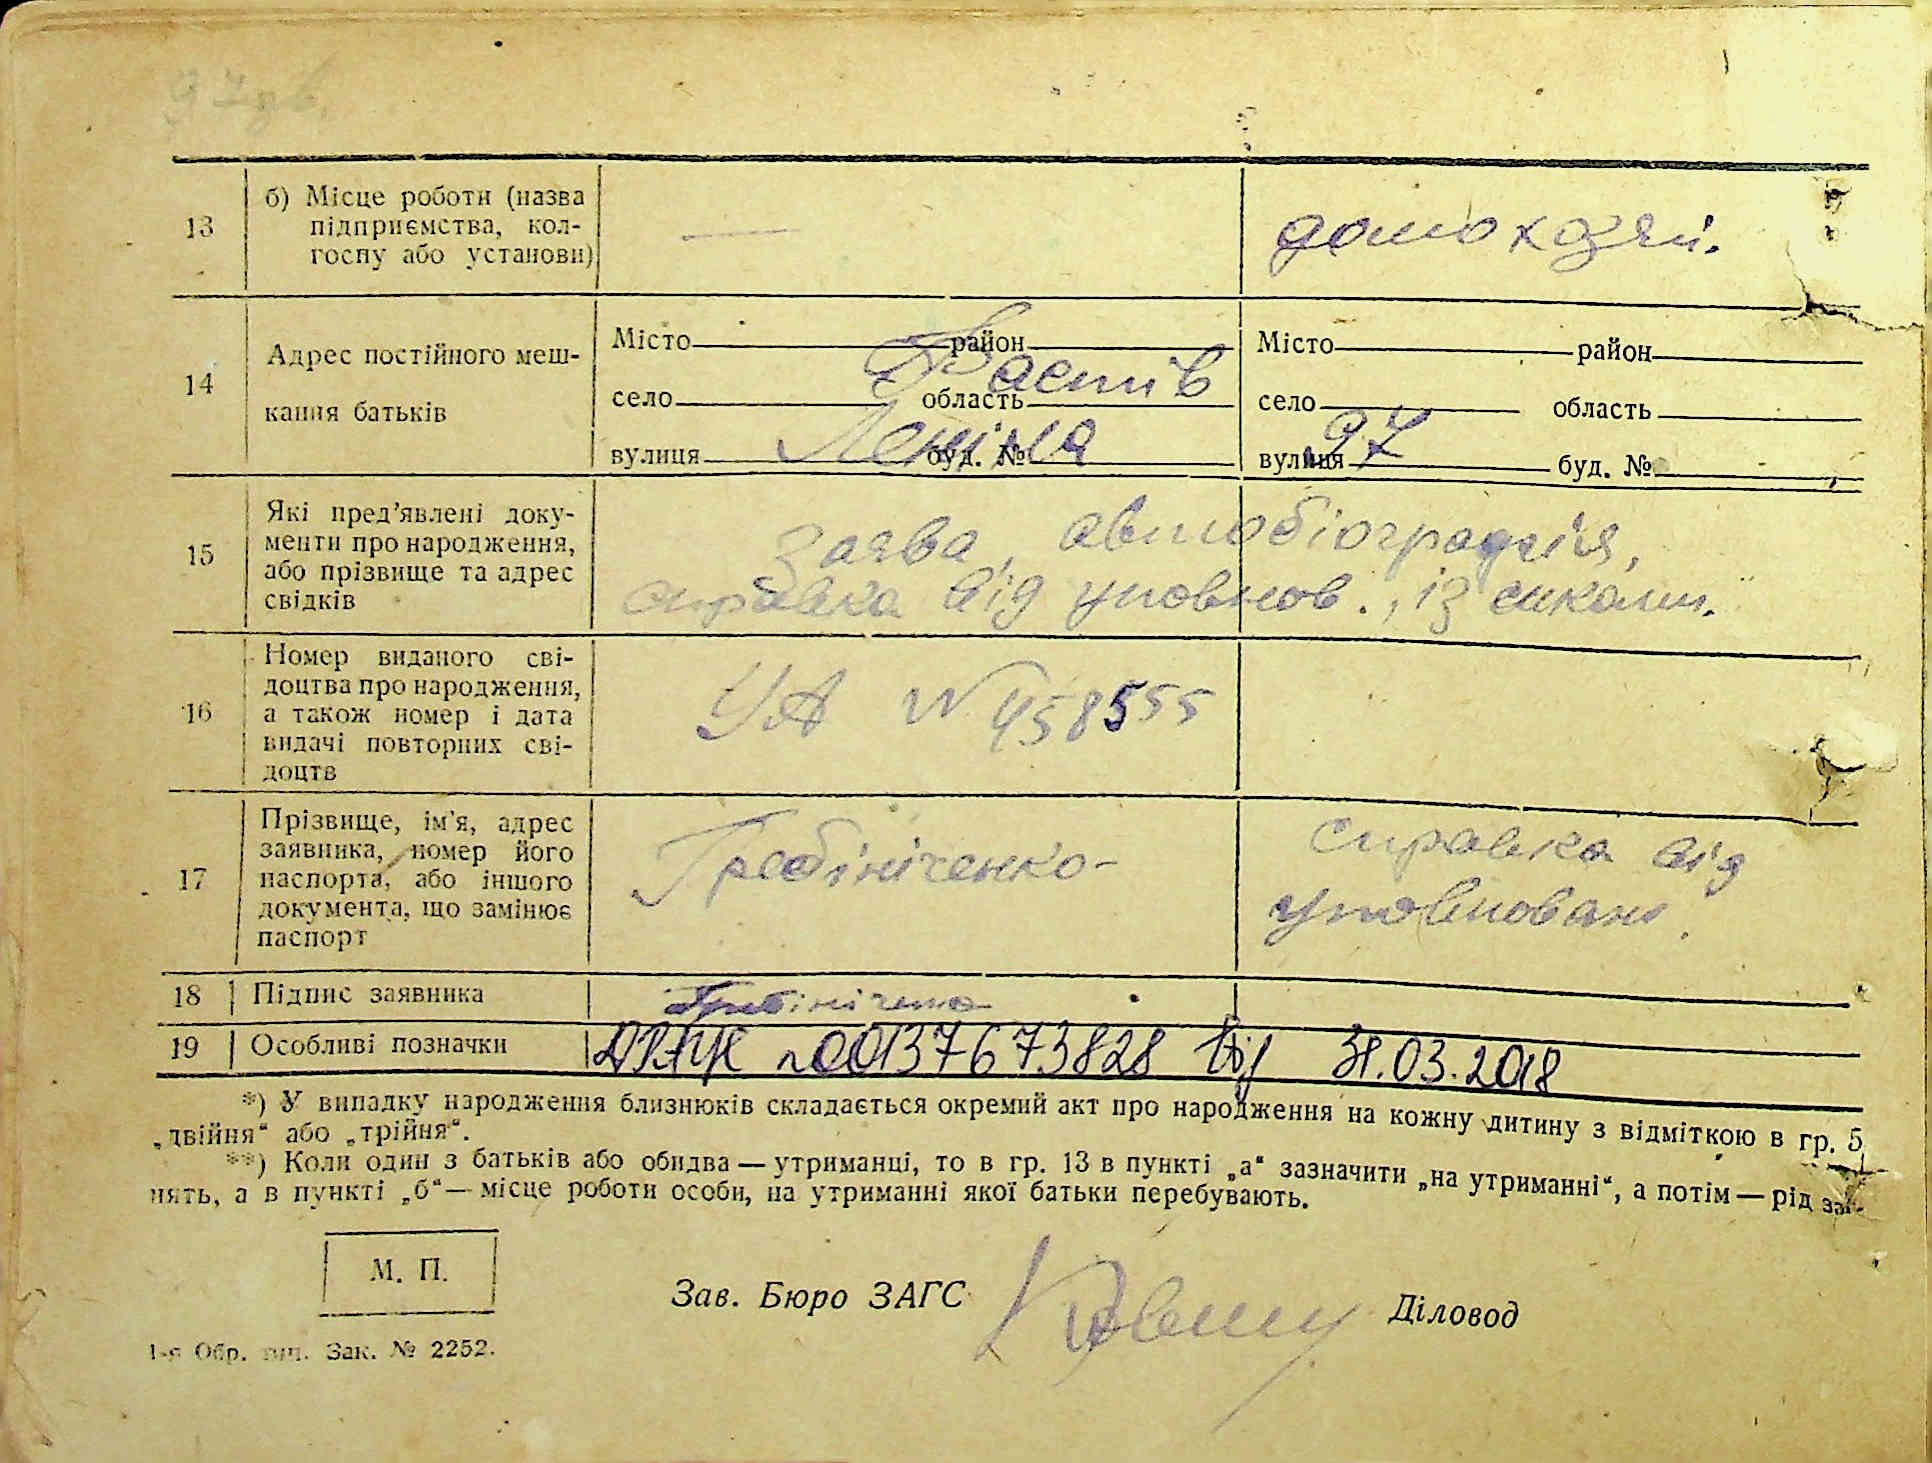 97 зв.
13
б) Місце роботи (назва
підприємства, кол-
госпу або установи)
—
домохозяй.
14
Адрес постійного меш-
кання батьків
Місто район
Фастів
село область
Леніна
вулиця буд. №
Місто район
село область
97
вулиця буд. №
15
Які пред’явлені доку-
менти про народження,
або прізвище та адрес
свідків
Заява, автобіографія,
справка від уповнов., із
16
Номер виданого сві-
доцтва про народження,
а також номер і дата
видачі повторних сві-
доцтв
УА № 458555
17
Прізвище, ім’я, адрес
заявника, номер його
паспорта, або іншого
документа, що замінює
паспорт
Гребініченко-
справка від
уповновани.
18
Підпис заявника
Гребініченко
19
Особливі позначки
ДРАЦС №00137673828 від 31.03.2018
*) У випадку народження близнюків складається окремий акт про народження на кожну дитину з відміткою в гр. 5
„двійня“ або „трійня“.
**) Коли один з батьків або обидва — утриманці, то в гр. 13 в пункті „а“ зазначити „на утриманні“, а потім — рід за-
нять, а в пункті „б“ — місце роботи особи, на утриманні якої батьки перебувають.
М. П.
Зав. Бюро ЗАГС
Діловод
1-я Обр. тип. Зак. № 2252.